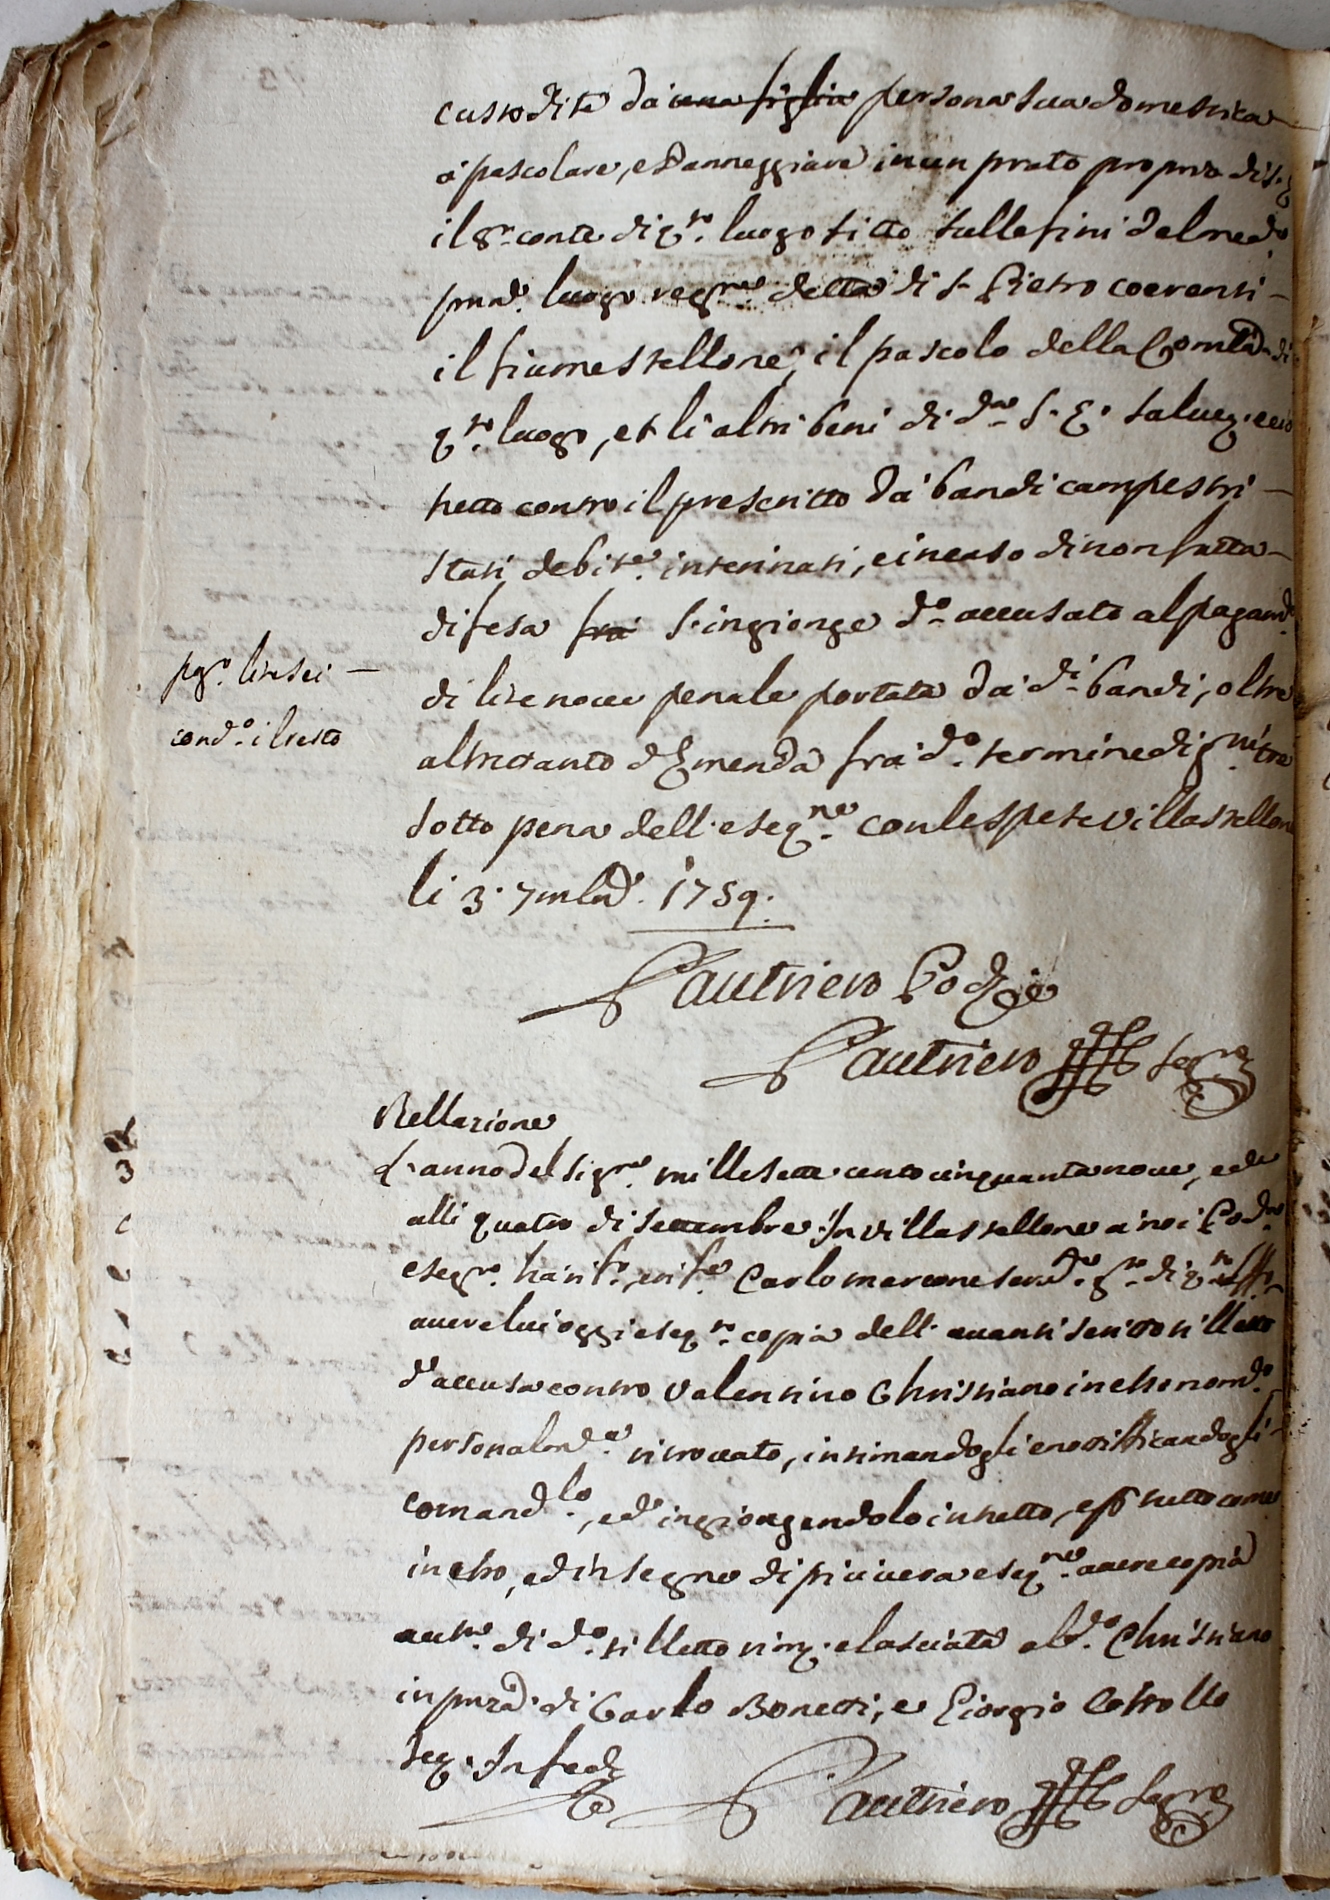 custodite da una figlia persona sua domestica
a' pascolare, e danneggiare in un prato proprio di S. E.
il Sr. conte di qto. luogo sitto sulle fini del med.o
pnte. luogo regne. detta di S. Pietro coerenti
il fiume stellone, il pascolo della Comtà di
qto. luogo, et li altri beni di da. S. E.
tutto contro il prescritto da' bandi campestri
stati debite. interinati, e in caso di non fatta
difesa fra S'ingionge do. accusato al pagamto.
di lire noue penale portata da' di. bandi, oltre
altretanto d'Emenda fra' do. termine di gni. tre
sotto pena dell'esegne. con le spese villastellone
li 3. 7mbre. 1759.
pgo. lire sei
condo. il resto
Gautriero Podà
Gautriero Segro
Rellazione
L'anno del sigre. mille sette cento cinquanta noue, ed
alli quatro di settembre in villastellone a' noi Podà
e segro. ha rifo. Carlo marcone serute. gto. di qto.
auere lui oggi esegto. copia dell'auanti scritto tilletto
d'accusa contro Valentino Christiano in esso nomto.
personalmte. ritrouato, intimandogli e notifficandogli
comandlo., ed ingiongendolo in tutto, e per tutto come
in esso, ed in segno di più uera esegne. auere copia
autca. di do. tilletto rimx. e lasciata al do. Christiano
in pnza. di Carlo Bonetti, e Giorgio
teg. In fede
Gautriero Segro